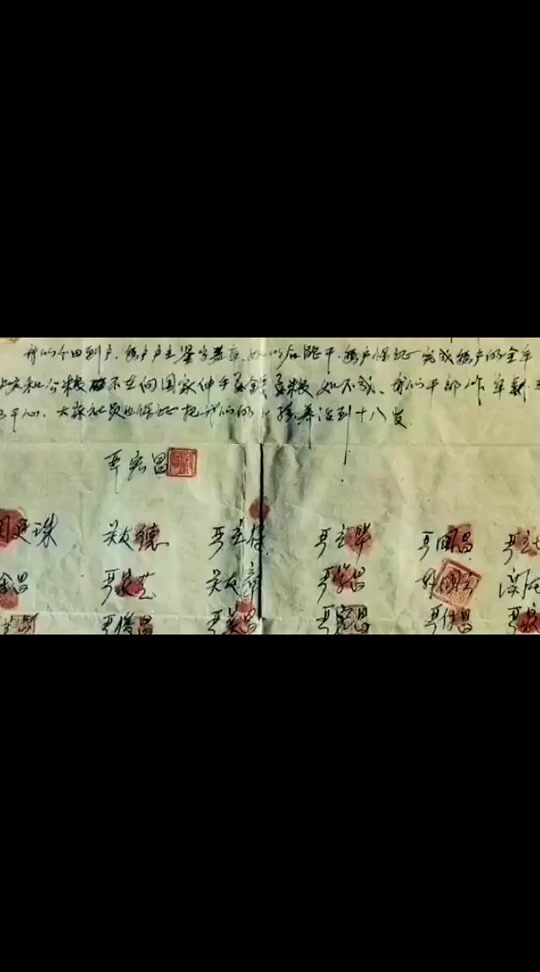 我们分田到户,每户户主签字盖章,如以后能干,每户保证完成每户的全年
上交和公粮 不在向国家伸手要钱要粮,如不成,我们干部作牢
也干心,大家社员也保证把我们的小孩养活到十八岁.
严宏昌
关廷珠 关友德 严立符 严立华 严国昌 严立
金昌 严家芝 关友章 严学昌 韩国云
严俊昌 严美昌 严宏昌 严付昌 严家